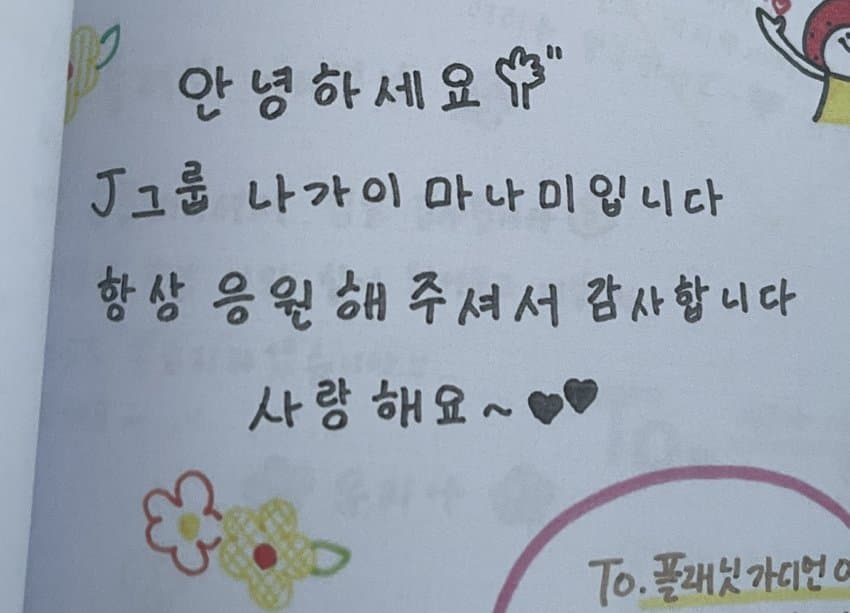 안녕하세요"
J그룹 나가이 마나미입니다
항상 응원해주셔서 감사합니다
사랑해요~♥♥
To. 플래닛가디언